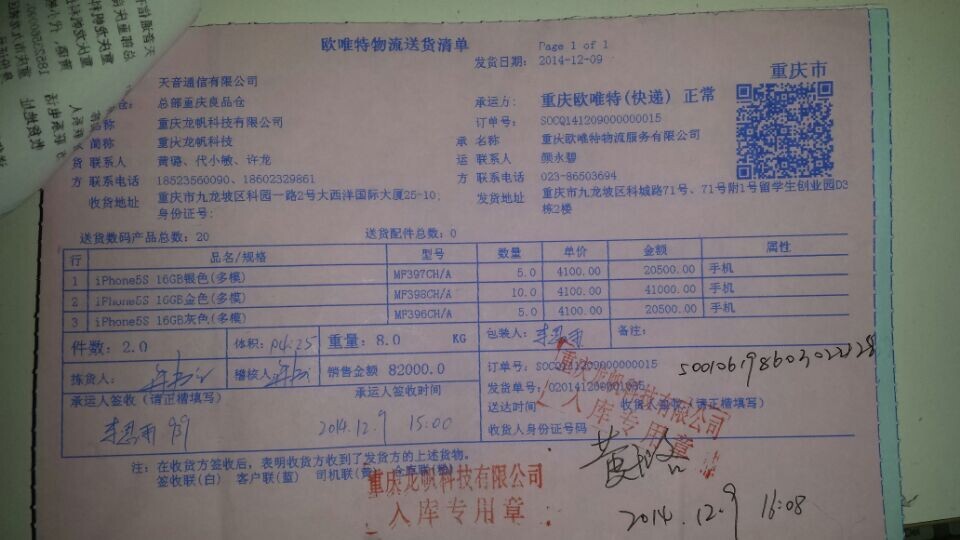 欧唯特物流送货清单
Page 1 of 1
发货日期: 2014-12-09
重庆市
天音通信有限公司
仓: 总部重庆良品仓
承运方: 重庆欧唯特(快递) 正常
订单号: SOCQ141209000000015
名称 重庆龙帆科技有限公司
承 名称 重庆欧唯特物流服务有限公司
简称 重庆龙帆科技
货 联系人 黄璐、代小敏、许龙
运 联系人 颜永碧
方 联系电话 18523560090、18602329861
方 联系电话 023-86503694
收货地址 重庆市九龙坡区科园一路2号大西洋国际大厦25-10;
身份证号:
发货地址 重庆市九龙坡区科城路71号、71号附1号留学生创业园D3
栋2楼
送货数码产品总数: 20 送货配件总数: 0
行 品名/规格 型号 数量 单价 金额 属性
1 iPhone5S 16GB银色(多模) MF397CH/A 5.0 4100.00 20500.00 手机
2 iPhone5S 16GB金色(多模) MF398CH/A 10.0 4100.00 41000.00 手机
3 iPhone5S 16GB灰色(多模) MF396CH/A 5.0 4100.00 20500.00 手机
件数: 2.0 体积: 重量: 8.0 KG 包装人: 备注:
拣货人: 稽核人: 销售金额 82000.0
订单号: SOCQ141209000000015
发货单号:
承运人签收(请正楷填写) 承运人签收时间
送达时间 收货人签收(请正楷填写)
2014.12.9 15:00
收货人身份证号码
注: 在收货方签收后, 表明收货方收到了发货方的上述货物。
签收联(白) 客户联(蓝) 司机联(黄)
重庆龙帆科技有限公司
入库专用章
重庆龙帆科技有限公司
入库专用章
2014.12.9 16:08